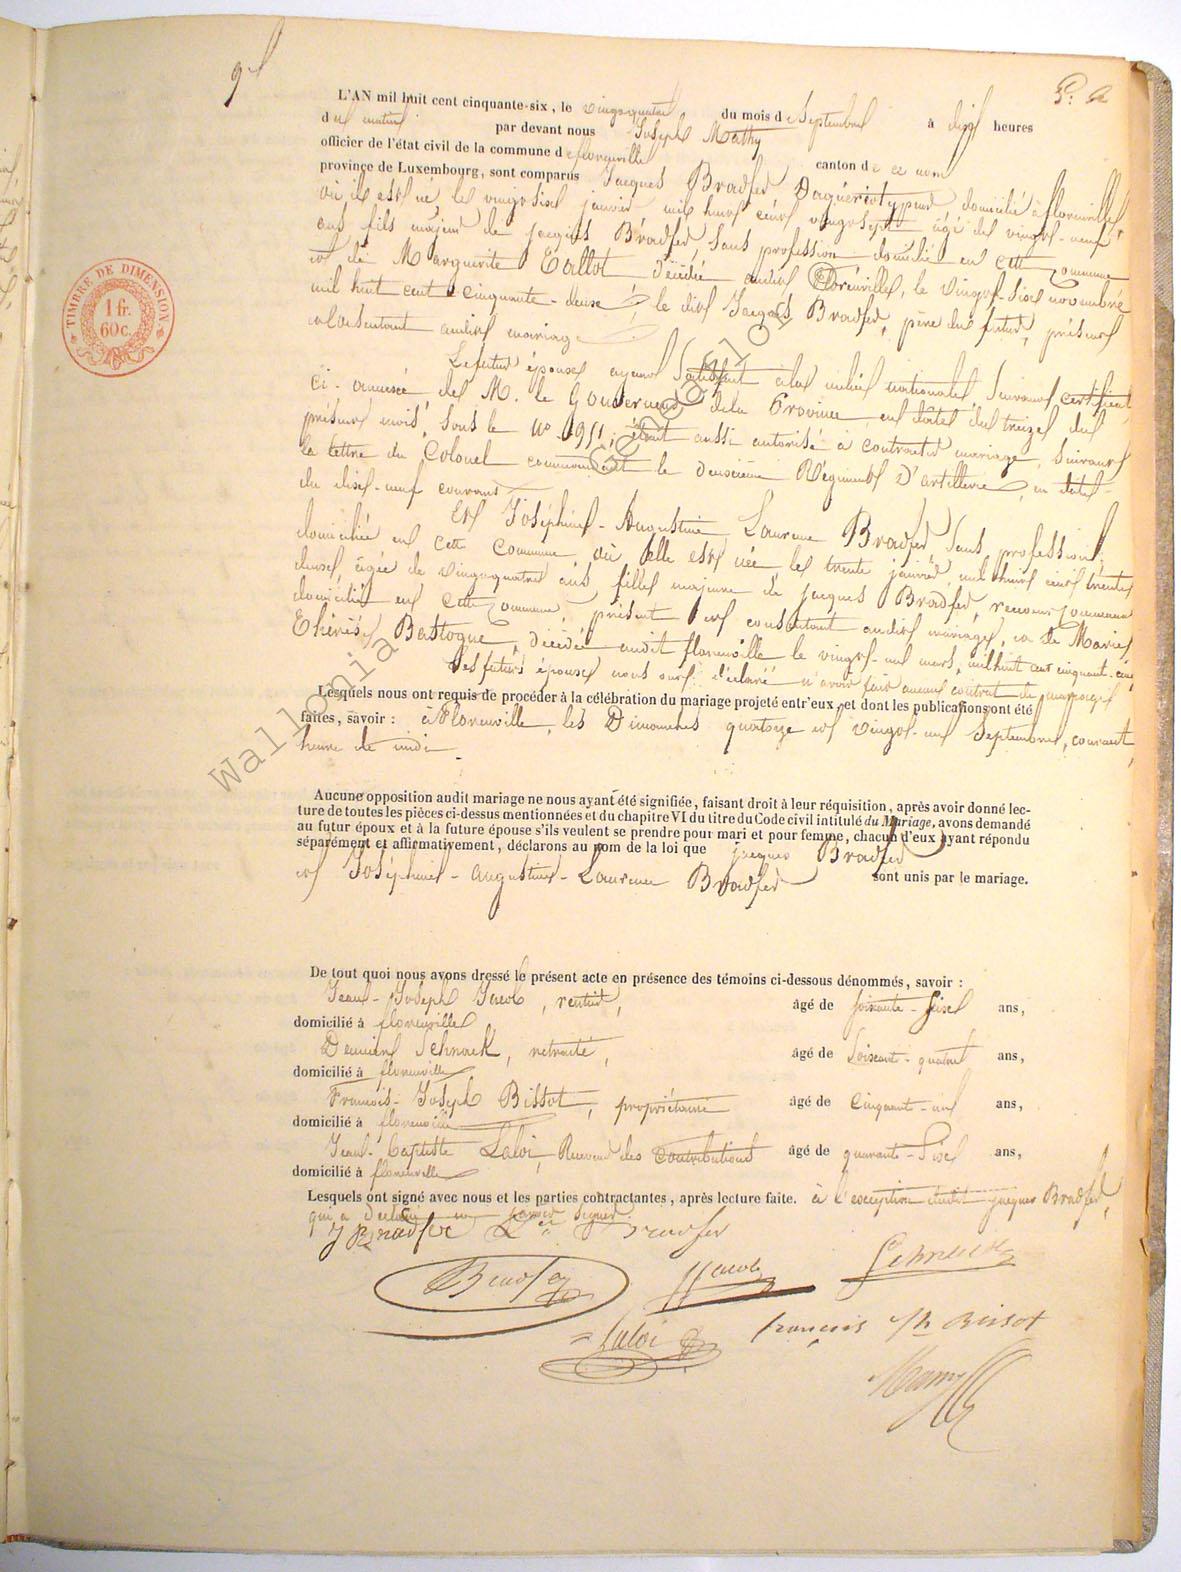 L'AN mil huit cent cinquante-six, le vingtquatre du mois de Septembre à dix heures
du matin par devant nous Joseph Mathy
officier de l'état civil de la commune de florenville canton de ce nom
province de Luxembourg, sont comparus Jacques Bradfer Daguérréotypeur domicilié à florenville,
où il est né le vingt-six janvier mil huit cent vingt-sept âgé de vingt-neuf
ans fils majeur de jacques Bradfer, sans profession domicilié en cette commune
et de Marguerite Tallot décédée audit Florenville, le vingt-six novembre
mil huit cent cinquante-deux, le dit Jacques Bradfer, père du futur, présent
consentant audit mariage
Le futur époux ayant satisfait à la milice nationale, suivant certificat,
ci-annexé de M. le Gouverneur de la Province en date du treize du
présent mois, sous le No 1951, étant aussi autorisé à contracter mariage, suivant
la lettre du Colonel commandant le deuxième Régiment d'artillerie, en date
du dix-neuf courant
Et Joséphine-Augustine Laurence Bradfer, sans profession,
domiciliée en cette commune, où elle est née le trente janvier mil huit cent trente
deux, âgée de vingtquatre ans fille majeure de jacques Bradfer, receveur communal
domicilié en cette commune, présent et consentant audit mariage, et de Marie
Thérèse Bastogne, décédée audit florenville le vingt-un mars, mil huit cent cinquante-cinq
Les futurs époux nous ont déclaré n'avoir fait aucun contrat de mariage
Lesquels nous ont requis de procéder à la célébration du mariage projeté entr'eux, et dont les publications ont été
faites, savoir : à Florenville, les Dimanches quatorze et vingt-un Septembre, courant,
heure de midi
Aucune opposition audit mariage ne nous ayant été signifiée, faisant droit à leur réquisition, après avoir donné lec-
ture de toutes les pièces ci-dessus mentionnées et du chapitre VI du titre du Code civil intitulé du Mariage, avons demandé
au futur époux et à la future épouse s'ils veulent se prendre pour mari et pour femme, chacun d'eux ayant répondu
séparément et affirmativement, déclarons au nom de la loi que jacques Bradfer
et Joséphine-Augustine-Laurence Bradfer sont unis par le mariage.
De tout quoi nous avons dressé le présent acte en présence des témoins ci-dessous dénommés, savoir :
Jean-Joseph Jacob, rentier, âgé de soixante-six ans,
domicilié à florenville
Damien Schnock, retraité, âgé de soixante-quatre ans,
domicilié à florenville
François-Joseph Bissot, propriétaire âgé de Cinquante-un ans,
domicilié à florenville
Jean-baptiste Laloi, Receveur des Contributions âgé de quarante-six ans,
domicilié à florenville
Lesquels ont signé avec nous et les parties contractantes, après lecture faite. à l'exception dudit jacques Bradfer,
qui a déclaré ne savoir signer
J Bradfer Bradfer
Bradfer Jacob
Laloi françois Jh Bissot
Mathy
TIMBRE DE DIMENSION
1 fr.
60 c.
Wallonia Genealogy